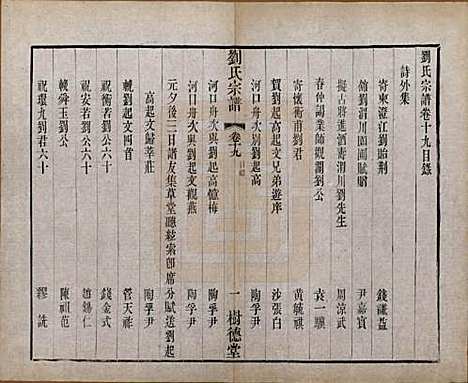 劉氏宗譜卷十九目錄
詩外集
寄東澄江劉貽荆 錢謙益
館劉渭川頤圃賦贈 尹嘉賓
擬古將進酒壽渭川劉先生 周諒武
春仲謁業師觀瀾劉公 袁一驥
寄懷衝甫劉君 黃毓祺
賀劉起高起文兄弟遊庠 沙張白
河口舟次別劉起高 陶孚尹
劉氏宗譜 卷十九 目錄 一 樹德堂
河口舟次與劉起高憶梅 陶孚尹
河口舟次與劉起文觀燕 陶孚尹
元夕後三日譜友集草堂聽絃索卽席分賦送劉起
高起文歸莘莊 陶孚尹
輓劉起文四首 管天祥
祝劉衝我劉公六十 錢金式
祝安若劉公六十 趙錫仁
輓舜玉劉公 陳祖范
祝環九劉君六十 繆詵